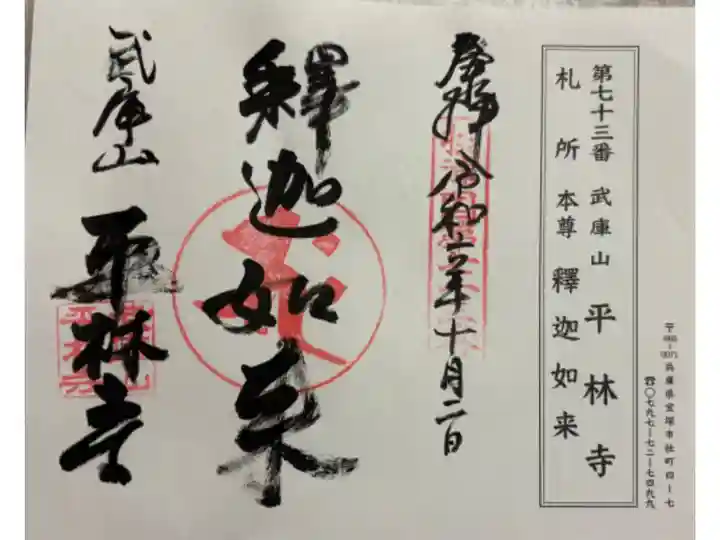 第七十三番 武庫山 平林寺
札所本尊 釋迦如来
〒665-0073 兵庫県宝塚市社町四-七
☎〇七九七-七二-七四九九
奉拝 令和六年十月二日
釋迦如来
武庫山 平林寺